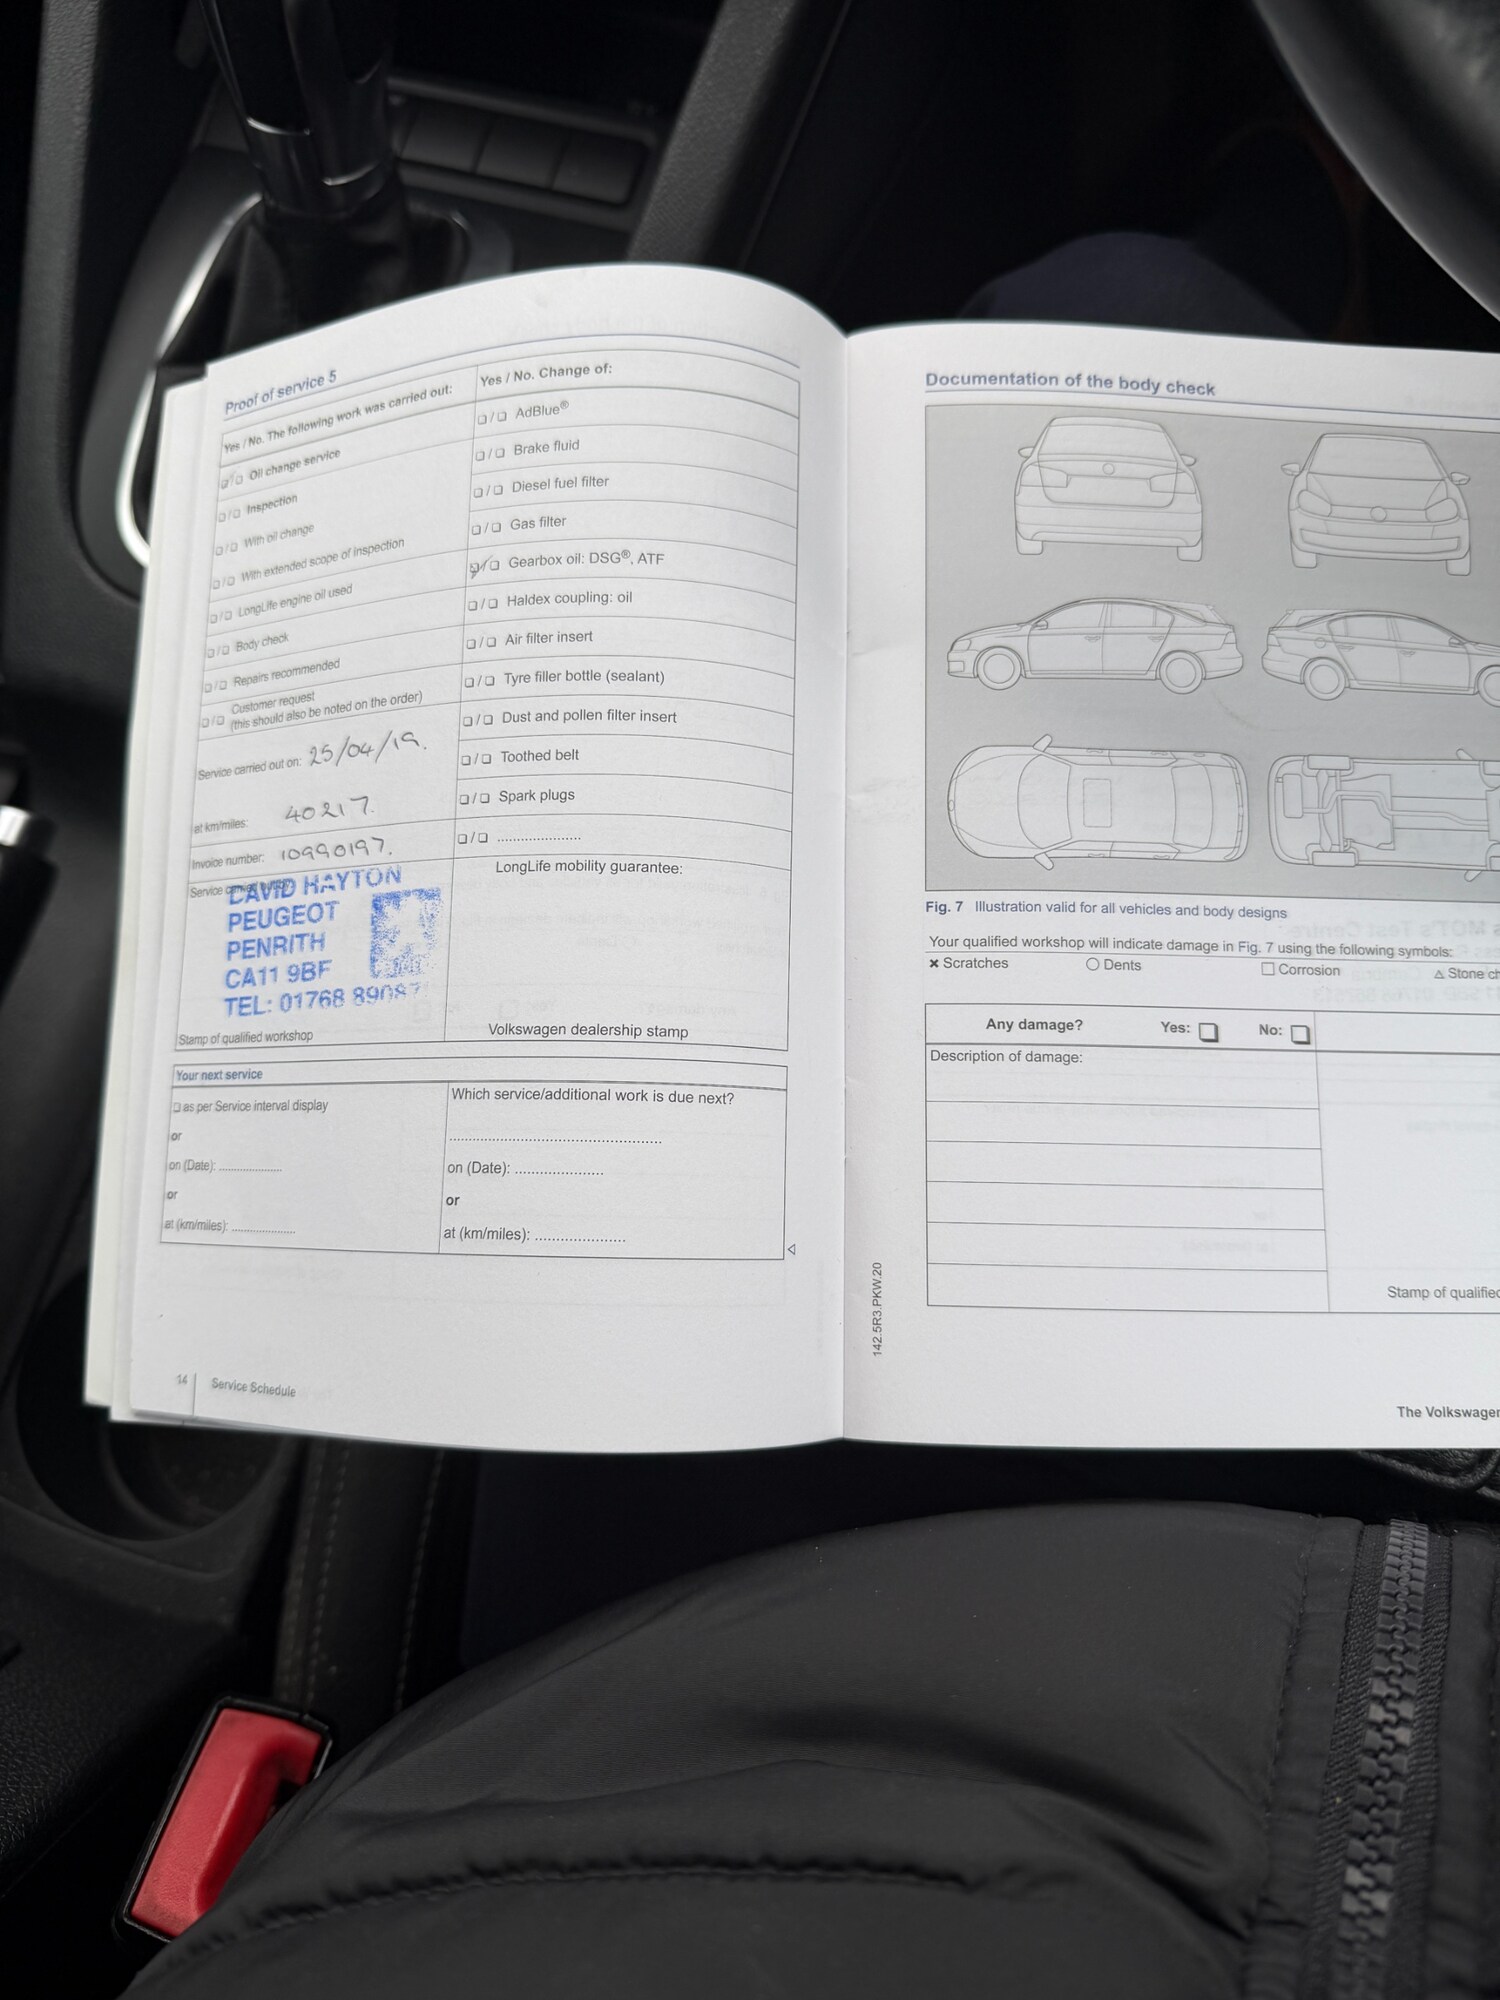 Proof of service 5
Yes / No. The following work was carried out:
❏/❏ Oil change service
❏/❏ Inspection
❏/❏ With oil change
❏/❏ With extended scope of inspection
❏/❏ LongLife engine oil used
❏/❏ Body check
❏/❏ Repairs recommended
❏/❏ Customer request
(this should also be noted on the order)
Service carried out on: 25/04/19.
at km/miles: 40217.
Invoice number: 10990197.
Service
DAVID HAYTON
PEUGEOT
PENRITH
CA11 9BF
TEL: 01768 89087
Stamp of qualified workshop
Yes / No. Change of:
❏/❏ AdBlue®
❏/❏ Brake fluid
❏/❏ Diesel fuel filter
❏/❏ Gas filter
❏/❏ Gearbox oil: DSG®, ATF
❏/❏ Haldex coupling: oil
❏/❏ Air filter insert
❏/❏ Tyre filler bottle (sealant)
❏/❏ Dust and pollen filter insert
❏/❏ Toothed belt
❏/❏ Spark plugs
❏/❏ .....................
LongLife mobility guarantee:
Volkswagen dealership stamp
Your next service
❏ as per Service interval display
or
on (Date): ....................
or
at (km/miles): ....................
Which service/additional work is due next?
.....................................................
on (Date): ......................
or
at (km/miles): ......................
14 Service Schedule
Documentation of the body check
Fig. 7 Illustration valid for all vehicles and body designs
Your qualified workshop will indicate damage in Fig. 7 using the following symbols:
× Scratches ○ Dents □ Corrosion △ Stone ch
Any damage? Yes: ❏ No: ❏
Description of damage:
Stamp of qualified
142.5R3.PKW.20
The Volkswagen